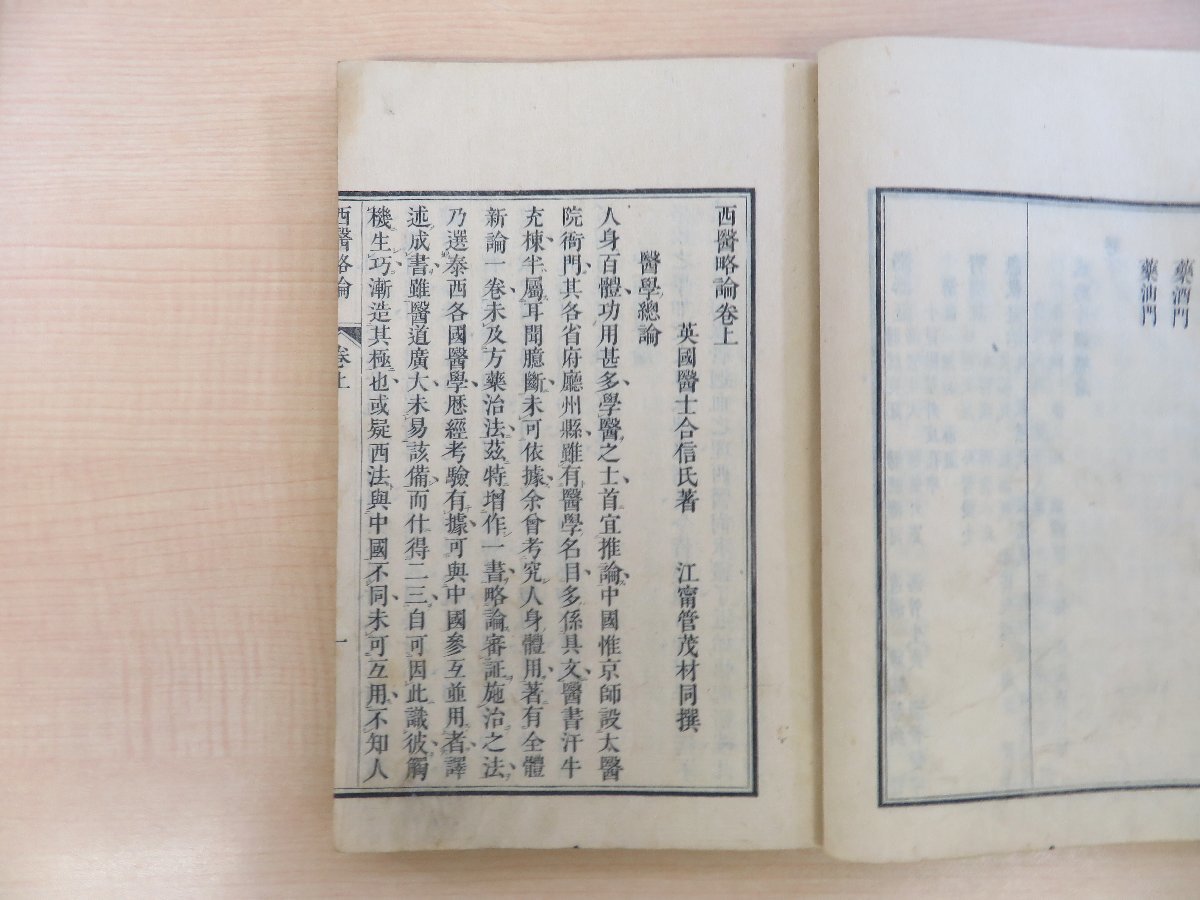 藥酒門
藥油門
西醫略論卷上
英國醫士合信氏著 江甯管茂材同撰
醫學總論
人身百體功用甚多學醫之士首宜推論中國惟京師設太醫
院衙門其各省府廳州縣雖有醫學名目多係具文醫書汗牛
充棟半屬耳聞臆斷未可依據余曾考究人身體用著有全體
新論一卷未及方藥治法茲特增作一書略論審証施治之法
乃選泰西各國醫學歷經考驗有據可與中國參互並用者譯
述成書雖醫道廣大未易該備而什得二三自可因此識彼觸
機生巧漸造其極也或疑西法與中國不同未可互用不知人
西醫略論 卷上 一